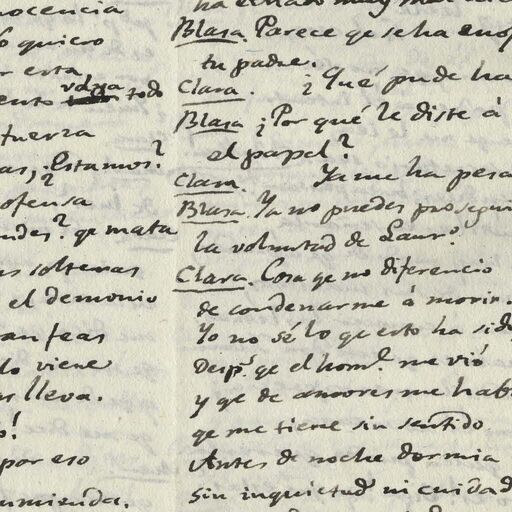 ocencia
quiero
r esta
valga
ento todo
fuerza
as, ¿Estamos?
ofensa
ndes? qe mata
as solteras
el demonio
an feas
lo viene
s lleva.
o!
por eso
umienda.
Blasa. Parece qe se ha eno
tu padre.
Clara. ¿Qué pude ha
Blasa ¿Por qué le diste á
el papel?
Clara. Ya me ha pesa
Blasa. Ya no puedes prosegui
la voluntad de Laurº.
Clara. Cosa qe no diferencio
de condenarme á morir.
Yo no sé lo qe esto ha sido
Despˢ qe el homᵉ me vió
y qe de amores me habl
qe me tiene sin sentido
Antes de noche dormia
sin inquietud ni cuidad